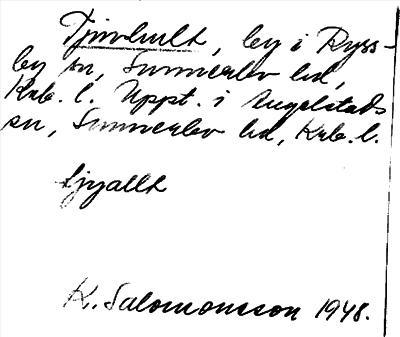 Tjurhult, by i Ryss-
by sn, Sunnerbo hd,
Krb. l. Uppt. i Angelstads
sn, Sunnerbo hd, Krb. l.
K. Salomonsson 1948.